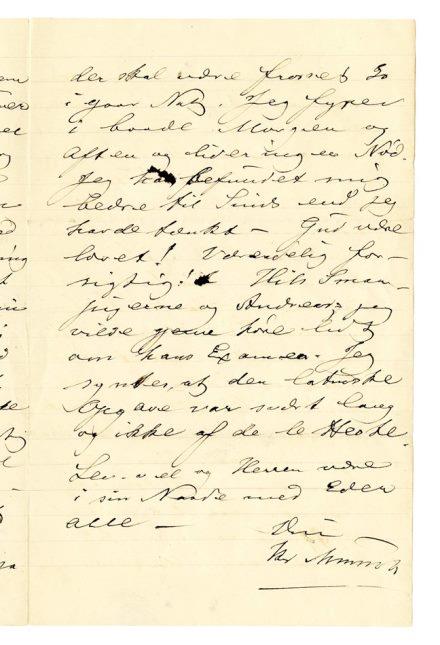 der skal være frosset so
i gaar Nat. Jeg fyrer
i baade Morgen og
Aften og lider ingen Nød.
Jeg har befundet mig
bedre til Sinds end jeg
havde tænkt – Gud være
lovet! Vær endelig for-
sigtig! Hils Smaa-
pigerne og Andreas, jeg
vilde gerne høre lidt
om hans Examen. Jeg
syntes, at den latinske
Opgave var svært lang
og ikke af de letteste.
Lev vel og Herren være
i sin Naade med Eder
alle –
Din
Chr Munch